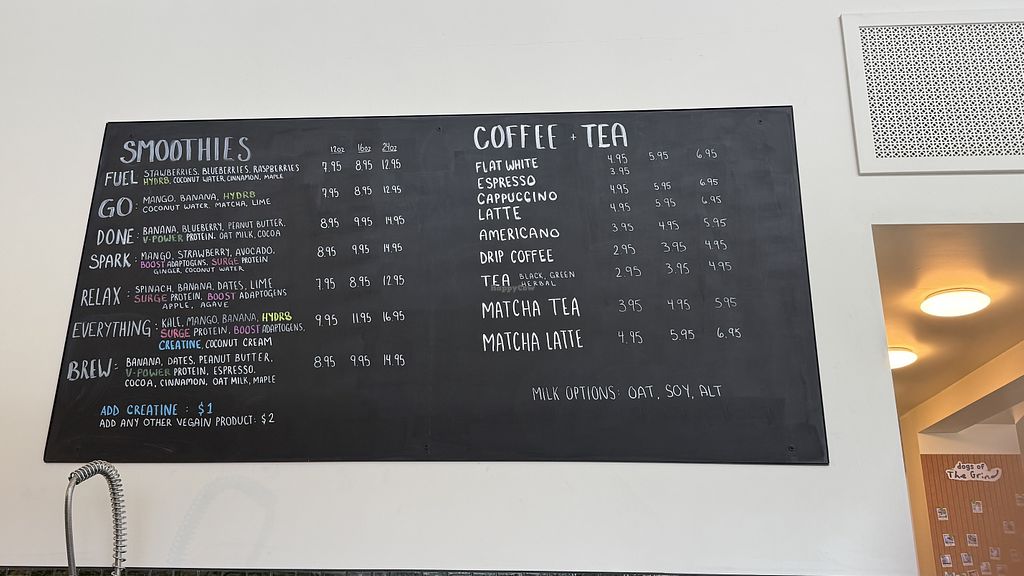 SMOOTHIES 12oz 16oz 24oz
FUEL STAWBERRIES, BLUEBERRIES, RASPBERRIES 7.95 8.95 12.95
HYDR8, COCONUT WATER, CINNAMON, MAPLE
GO: MANGO, BANANA, HYDR8 7.95 8.95 12.95
COCONUT WATER, MATCHA, LIME
DONE: BANANA, BLUEBERRY, PEANUT BUTTER, 8.95 9.95 14.95
V-POWER PROTEIN, OAT MILK, COCOA
SPARK: MANGO, STRAWBERRY, AVOCADO, 8.95 9.95 14.95
BOOST ADAPTOGENS, SURGE PROTEIN
GINGER, COCONUT WATER
RELAX: SPINACH, BANANA, DATES, LIME 7.95 8.95 12.95
SURGE PROTEIN, BOOST ADAPTOGENS
APPLE, AGAVE
EVERYTHING: KALE, MANGO, BANANA, HYDR8 9.95 11.95 16.95
SURGE PROTEIN, BOOST ADAPTOGENS,
CREATINE, COCONUT CREAM
BREW: BANANA, DATES, PEANUT BUTTER, 8.95 9.95 14.95
V-POWER PROTEIN, ESPRESSO,
COCOA, CINNAMON, OAT MILK, MAPLE
ADD CREATINE : $1
ADD ANY OTHER VEGAIN PRODUCT: $2
COFFEE + TEA
FLAT WHITE 4.95 5.95 6.95
ESPRESSO 3.95
CAPPUCCINO 4.95 5.95 6.95
LATTE 4.95 5.95 6.95
AMERICANO 3.95 4.95 5.95
DRIP COFFEE 2.95 3.95 4.95
TEA BLACK, GREEN 2.95 3.95 4.95
HERBAL
HappyCow
MATCHA TEA 3.95 4.95 5.95
MATCHA LATTE 4.95 5.95 6.95
MILK OPTIONS: OAT, SOY, ALT
dogs of
The Grind